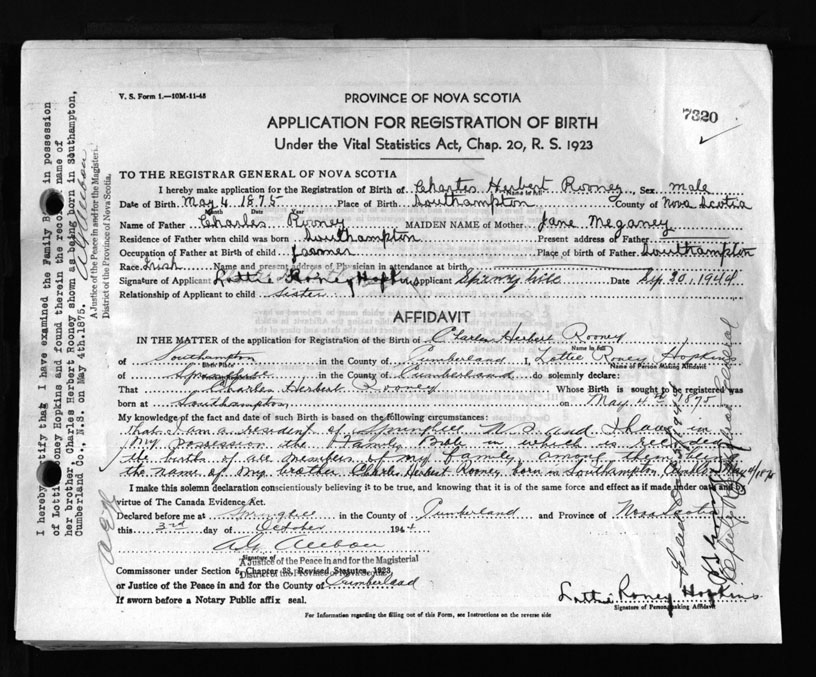 V. S. Form 1.—10M-11-45
PROVINCE OF NOVA SCOTIA
7320
APPLICATION FOR REGISTRATION OF BIRTH
Under the Vital Statistics Act, Chap. 20, R. S. 1923
TO THE REGISTRAR GENERAL OF NOVA SCOTIA
I hereby make application for the Registration of Birth of Charles Herbert Rooney, Sex male
Name in full
Date of Birth May 4 1875 Place of Birth Southampton County of Nova Scotia
Month Date Year
Name of Father Charles Rooney MAIDEN NAME of Mother Jane Meganey
Residence of Father when child was born Southampton Present address of Father
Occupation of Father at Birth of child farmer Place of birth of Father Southampton
Race Irish Name and present address of Physician in attendance at birth
Signature of Applicant Lottie Rooney Hopkins Applicant Springhill Date Sep 30, 1944
Relationship of Applicant to child sister
AFFIDAVIT
IN THE MATTER of the application for Registration of the Birth of Charles Herbert Rooney
Name in full
of Southampton in the County of Cumberland I, Lottie Roney Hopkins
Birth Place Name of Person Making Affidavit
of Springhill in the County of Cumberland do solemnly declare:
That Charles Herbert Rooney Whose Birth is sought to be registered was
born at Southampton on May 4th 1875
My knowledge of the fact and date of such Birth is based on the following circumstances:
That I am a resident of Springhill N.S. and I have in
my possession the Family Bible in which is recorded
the birth of all members of my family, among them being
the name of my brother Charles Herbert Rooney born in Southampton May 4/1875
I make this solemn declaration conscientiously believing it to be true, and knowing that it is of the same force and effect as if made under oath and by
virtue of The Canada Evidence Act.
Declared before me at Springhill in the County of Cumberland and Province of Nova Scotia
this 3rd day of October 1944
Signature of
A Justice of the Peace in and for the Magisterial
Commissioner under Section 5, Chapter 38, Revised Statutes, 1923
District of the Province of Nova Scotia.
or Justice of the Peace in and for the County of Cumberland
If sworn before a Notary Public affix seal.
Lottie Roney Hopkins
Signature of Person making Affidavit
For Information regarding the filling out of this Form, see Instructions on the reverse side
I hereby certify that I have examined the Family Bible in possession
of Lottie Rooney Hopkins and found therein the record name of
her brother, Charles Herbert Rooney shown as being born in Southampton,
Cumberland Co., N.S. on May 4th.1875.
A Justice of the Peace in and for the Magisterial
District of the Province of Nova Scotia.
Deputy Registrar General